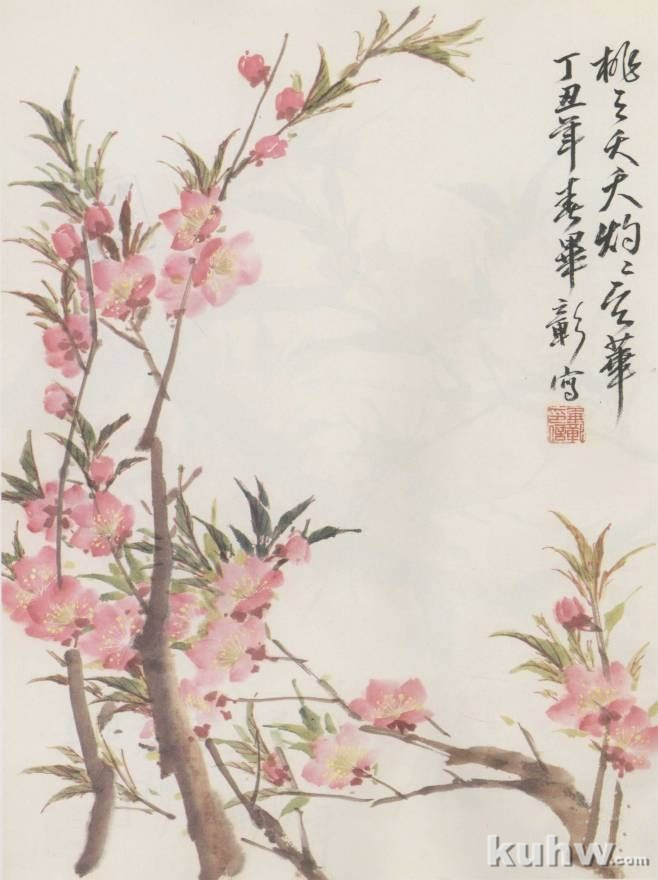 桃之夭夭灼〻其華
丁丑年春畢彰寫
kuhw.com